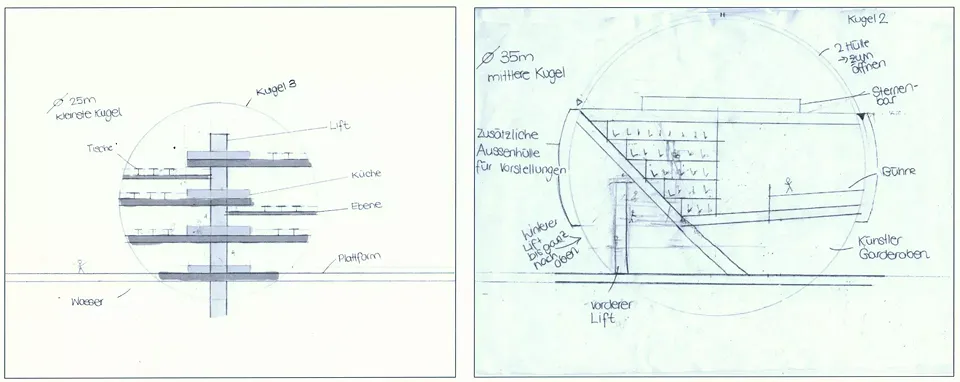 Kugel 3
Ø 25m
kleinste Kugel
Lift
Tische
Küche
Ebene
Plattform
Wasser
Kugel 2
Ø 35m
mittlere Kugel
2 Hülle
→ zum
öffnen
Sternen-
bar
Zusätzliche
Aussenhülle
für Vorstellungen
Bühne
hinterer
Lift
bis ganz
nach oben
Künstler
Garderoben
vorderer
Lift